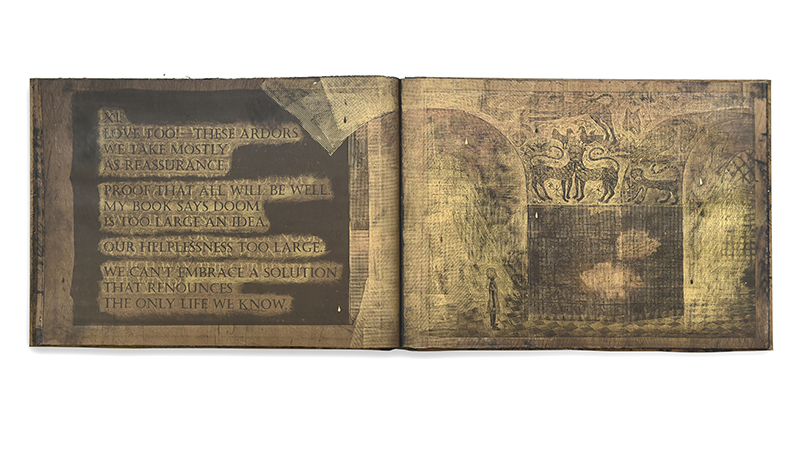 XI
LOVE TOO!—THESE ARDORS
WE TAKE MOSTLY
AS REASSURANCE
PROOF THAT ALL WILL BE WELL
MY BOOK SAYS DOOM
IS TOO LARGE AN IDEA
OUR HELPLESSNESS TOO LARGE.
WE CAN'T EMBRACE A SOLUTION
THAT RENOUNCES
THE ONLY LIFE WE KNOW.